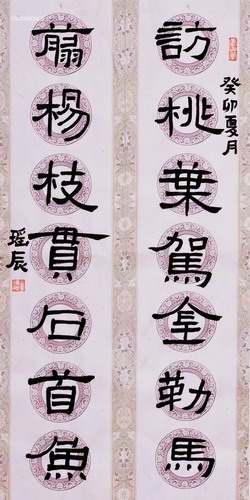 癸卯夏月
訪桃葉駕金勒馬
翦楊枝貫石首魚
瑶辰